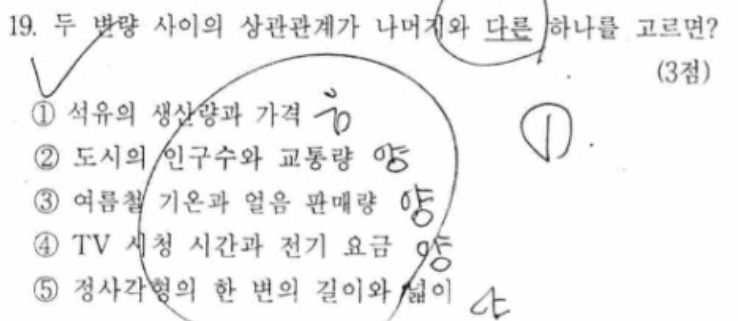 19. 두 변량 사이의 상관관계가 나머지와 다른 하나를 고르면?
(3점)
① 석유의 생산량과 가격 음
② 도시의 인구수와 교통량 양
③ 여름철 기온과 얼음 판매량 양
④ TV 시청 시간과 전기 요금 양
⑤ 정사각형의 한 변의 길이와 넓이
①